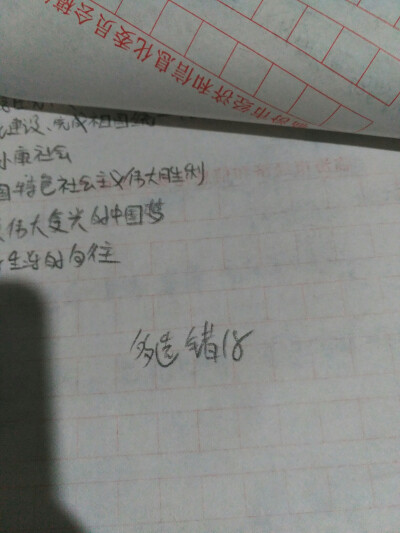 济市经济和信息化委员会稿
建设、完成祖国统一
小康社会
国特色社会主义伟大胜利
伟大复兴的中国梦
生活的向往
多选错18